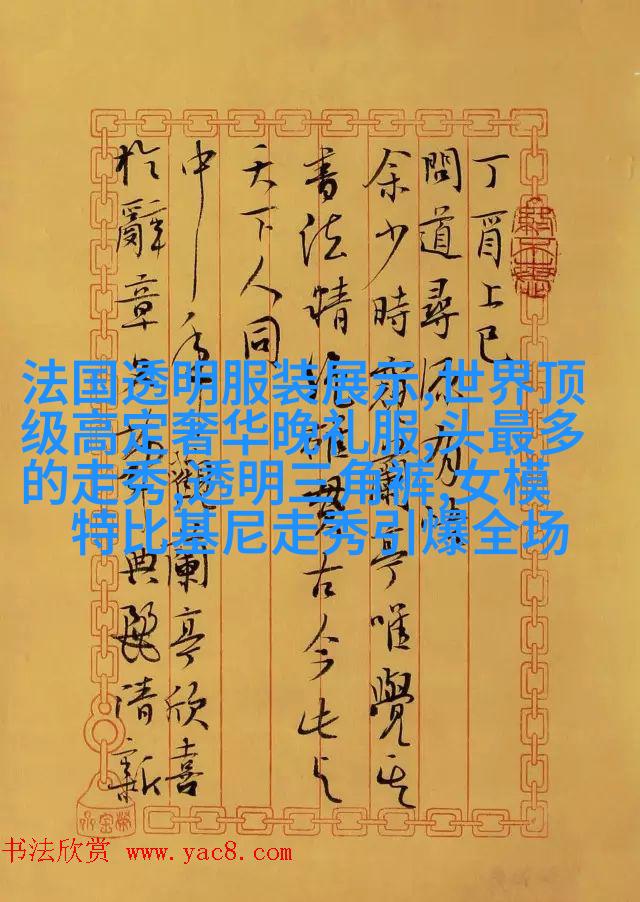 丁酉上巳
問道尋源有
余少時蘭亭唯覺其
書法精絕雄貫古今此与
天下人同
中年觀蘭亭欣喜
於辭章典麗清新
法国透明服装展示,世界顶
级高定奢华晚礼服,头最多
的走秀,透明三角裤,女模
特比基尼走秀引爆全场
书法欣赏 www.yac8.com